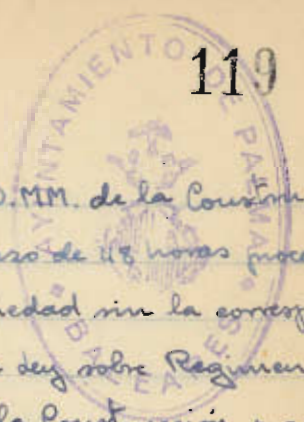 119
AYUNTAMIENTO DE PALMA
BALEARES
O.MM. de la Constru
so de 48 horas proce
edad sin la corresp
Ley sobre Regimen
la Const